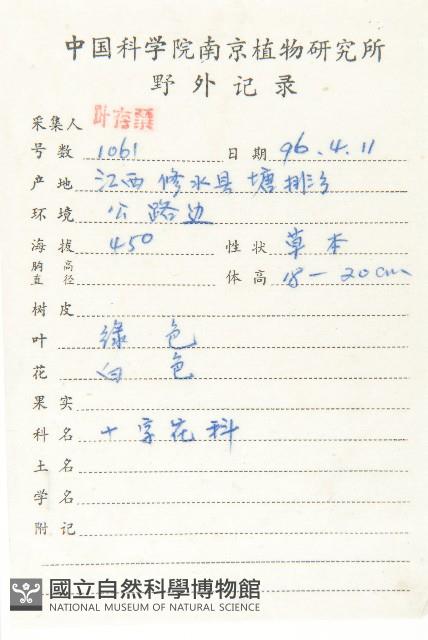 中国科学院南京植物研究所
野外记录
采集人 叶存粟
号数 1061 日期 96.4.11
产地 江西 修水县 塘排
环境 公路边
海拔 450 性状 草本
胸高直径 体高 18-20cm
树皮
叶 绿色
花 白色
果实
科名 十字花科
土名
学名
附记
國立自然科學博物館
NATIONAL MUSEUM OF NATURAL SCIENCE